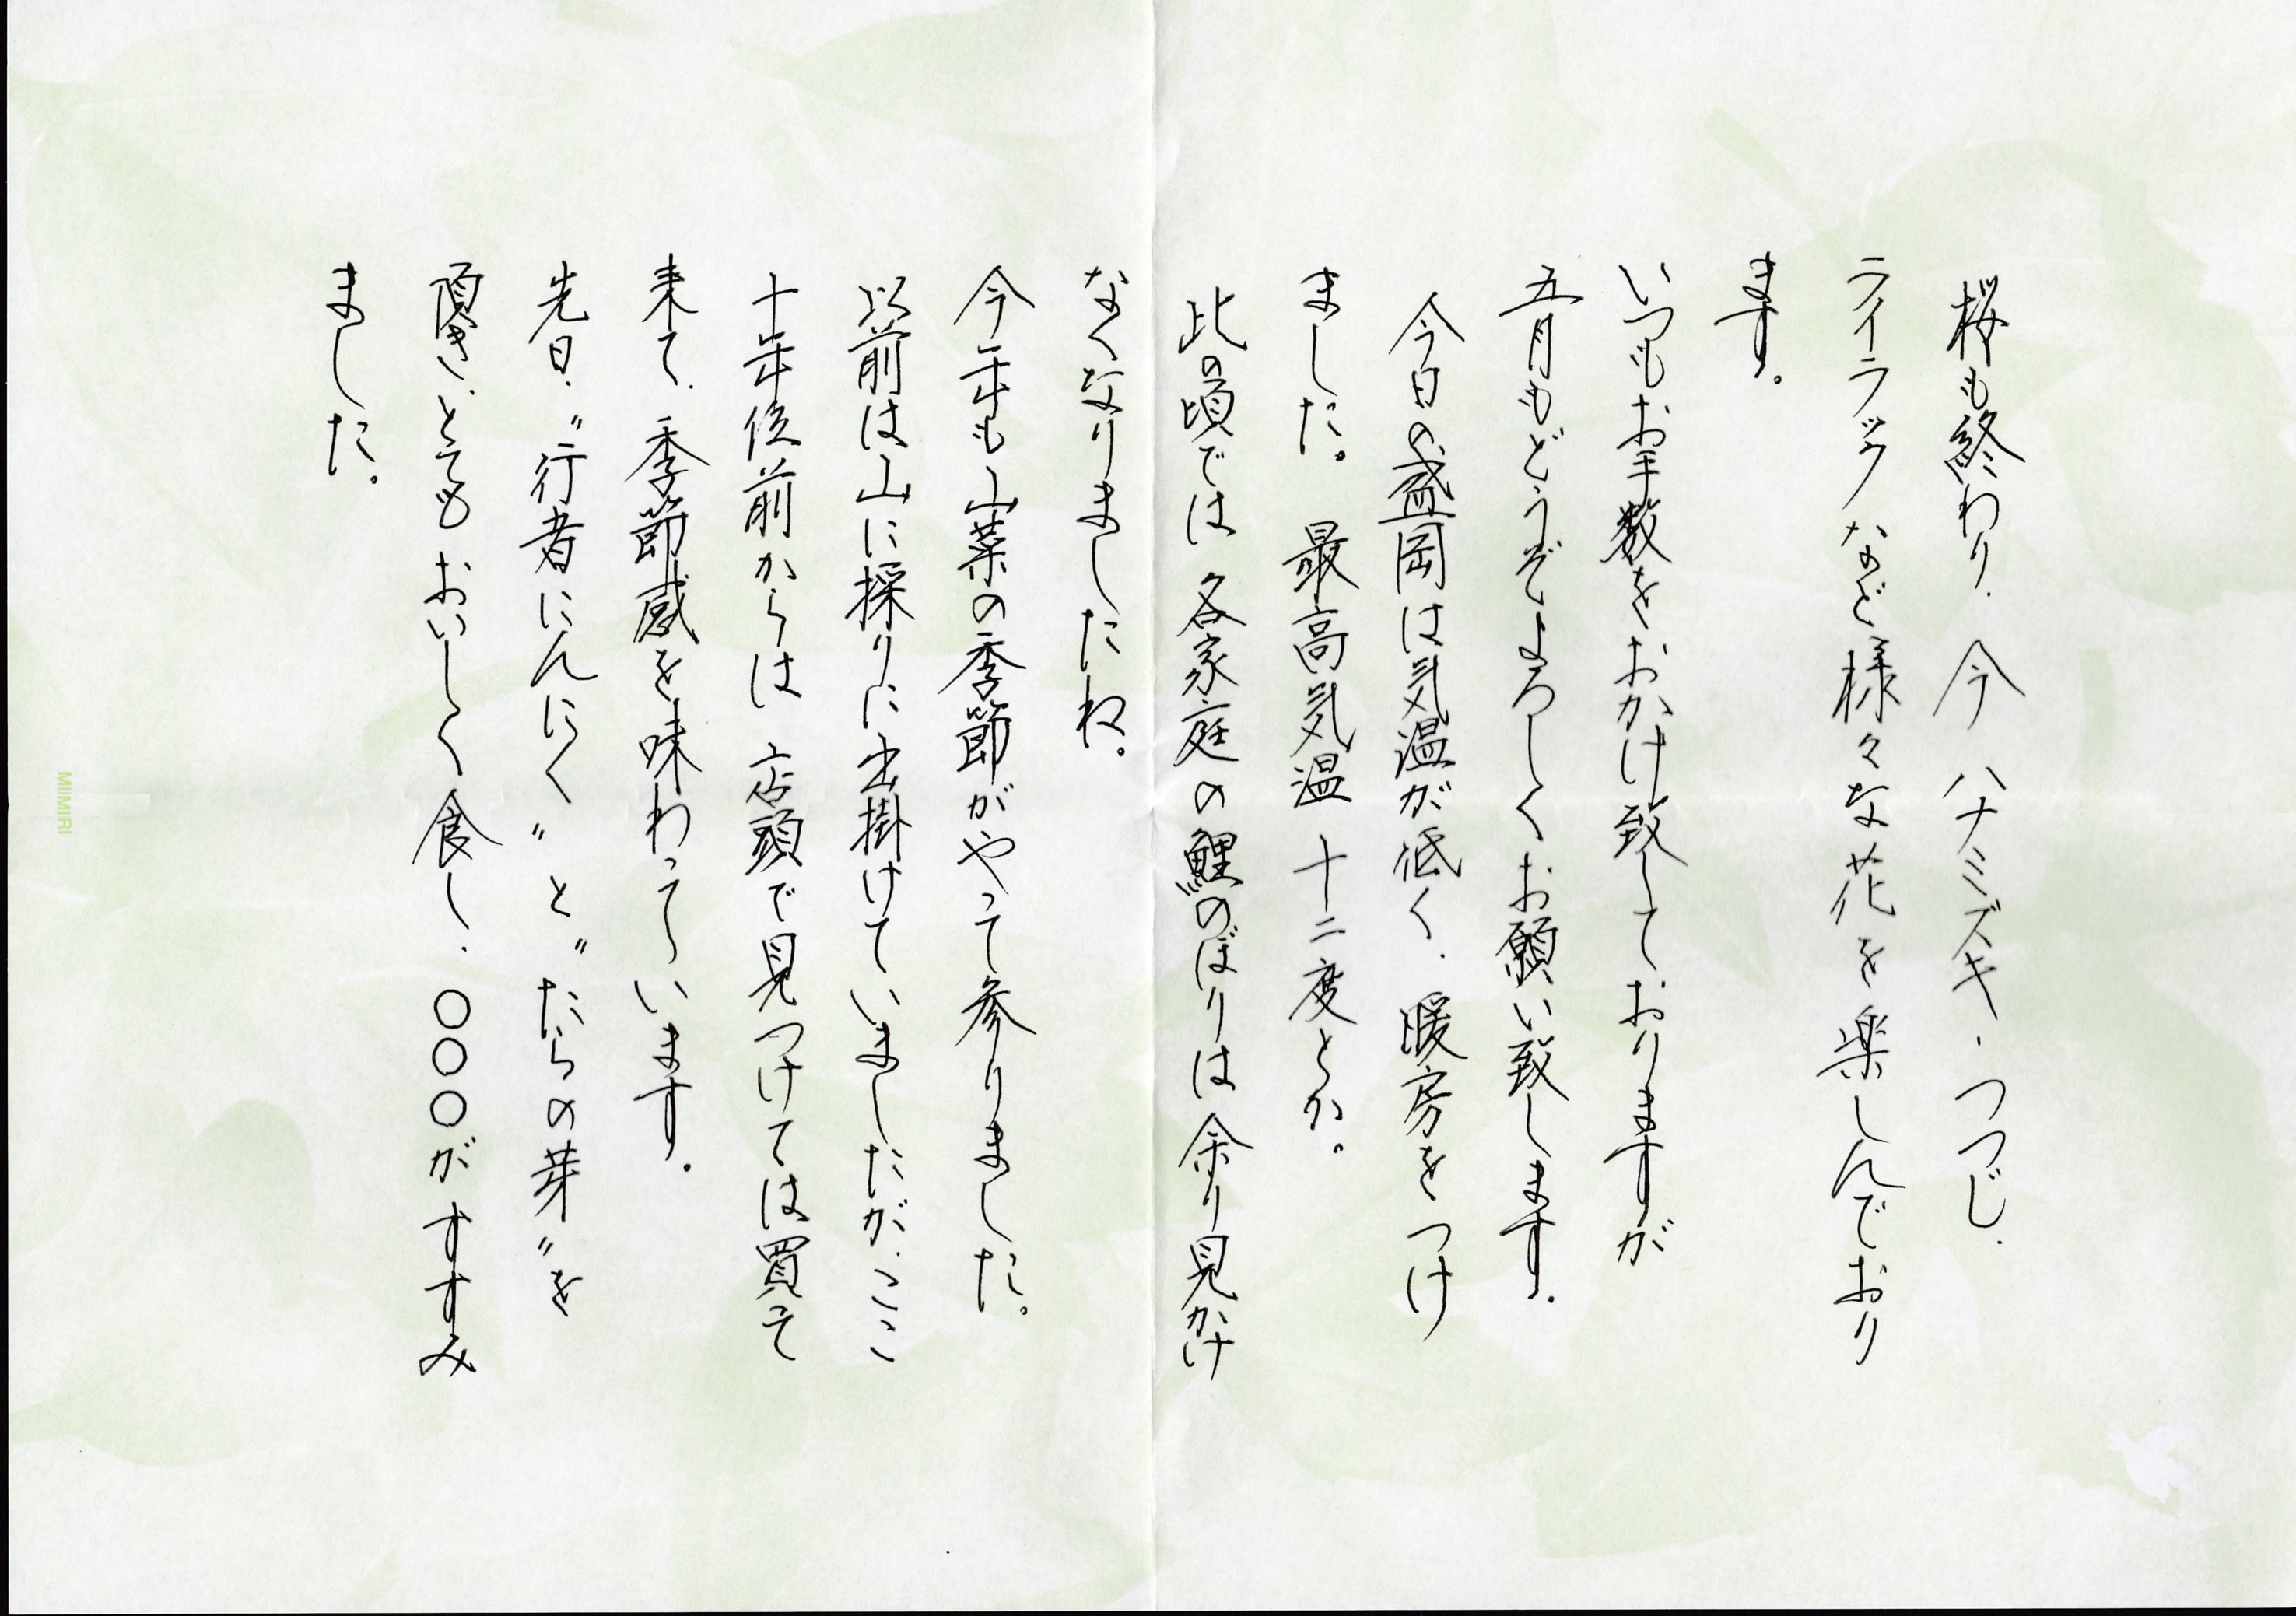 桜も終わり、今 ハナミズキ・つつじ、
ライラックなど様々な花を楽しんでおり
ます。
いつもお手数をおかけ致しておりますが
五月もどうぞよろしくお願い致します。
今日の盛岡は気温が低く、暖房をつけ
ました。 最高気温 十二度とか。
此の頃では 各家庭の鯉のぼりは余り見かけ
なくなりましたね。
今年も山菜の季節がやって参りました。
以前は山に採りに出掛けていましたが、ここ
十年位前からは 店頭で見つけては買って
来て、季節感を味わっています。
先日、〝行者にんにく〟と〝たらの芽〟を
頂き、とてもおいしく食し、〇〇〇がすすみ
ました。
MIMIRI